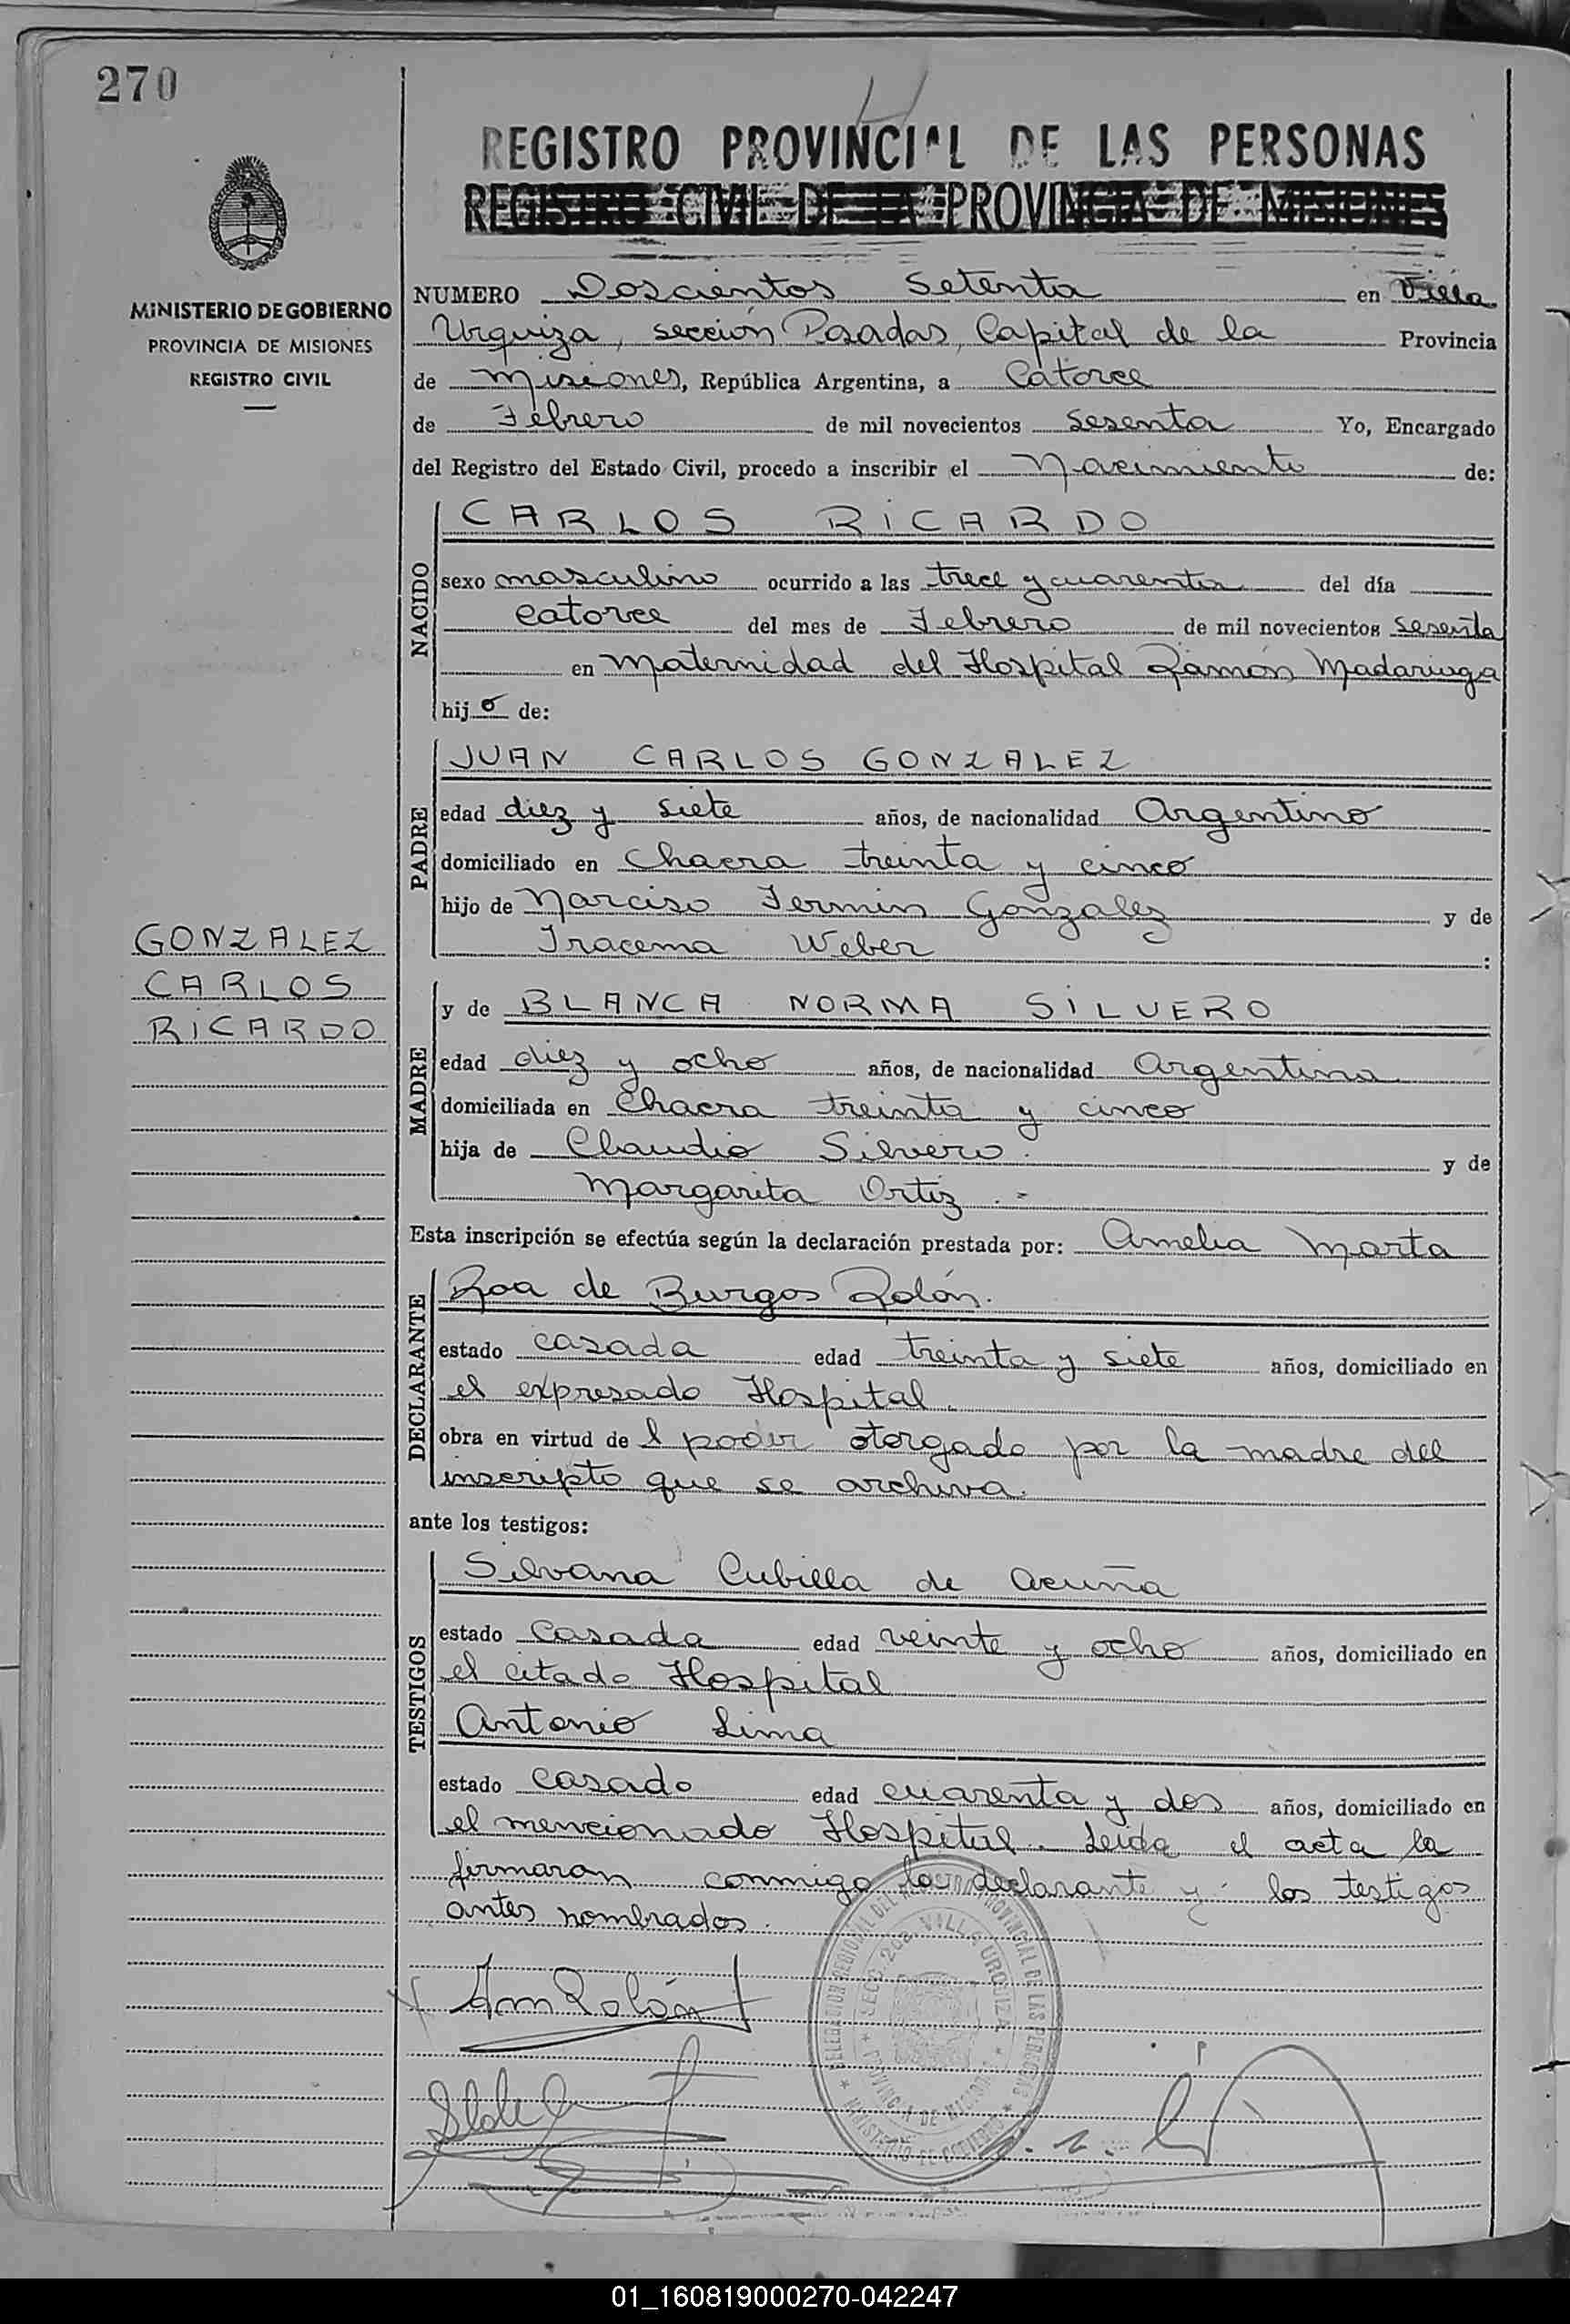 270
REGISTRO PROVINCIAL DE LAS PERSONAS
REGISTRO CIVIL DE LA PROVINCIA DE MISIONES
MINISTERIO DE GOBIERNO
PROVINCIA DE MISIONES
REGISTRO CIVIL
NUMERO Doscientos Setenta en Villa
Urquiza, sección Posadas, Capital de la Provincia
de Misiones, República Argentina, a Catorce
de Febrero de mil novecientos sesenta Yo, Encargado
del Registro del Estado Civil, procedo a inscribir el Nacimiento de:
NACIDO
CARLOS RICARDO
sexo masculino ocurrido a las trece y cuarenta del día
catorce del mes de Febrero de mil novecientos sesenta
en Maternidad del Hospital Ramón Madariaga
hijo de:
PADRE
JUAN CARLOS GONZALEZ
edad diez y siete años, de nacionalidad Argentino
domiciliado en Chacra treinta y cinco
hijo de Narciso Fermin Gonzalez y de
Iracema Weber :
GONZALEZ
CARLOS
RICARDO
MADRE
y de BLANCA NORMA SILVERO
edad diez y ocho años, de nacionalidad Argentina
domiciliada en Chacra treinta y cinco
hija de Claudio Silvero y de
Margarita Ortiz . -
Esta inscripción se efectúa según la declaración prestada por: Amelia Marta
DECLARANTE
Roa de Burgos Rolón.
estado casada edad treinta y siete años, domiciliado en
el expresado Hospital.
obra en virtud de l poder otorgado por la madre del
inscripto que se archiva.
ante los testigos:
TESTIGOS
Silvana Cubilla de Acuña
estado Casada edad veinte y ocho años, domiciliado en
el citado Hospital
Antonio Lima
estado Casado edad cuarenta y dos años, domiciliado en
el mencionado Hospital. Leida el acta la
firmaron conmigo la declarante y los testigos
antes nombrados.
DELEGACION REGIONAL DEL REGISTRO PROVINCIAL DE LAS PERSONAS
SECC. 2da. VILLA URQUIZA
PROVINCIA DE MISIONES
MINISTERIO DE GOBIERNO
Rolón
01_160819000270-042247